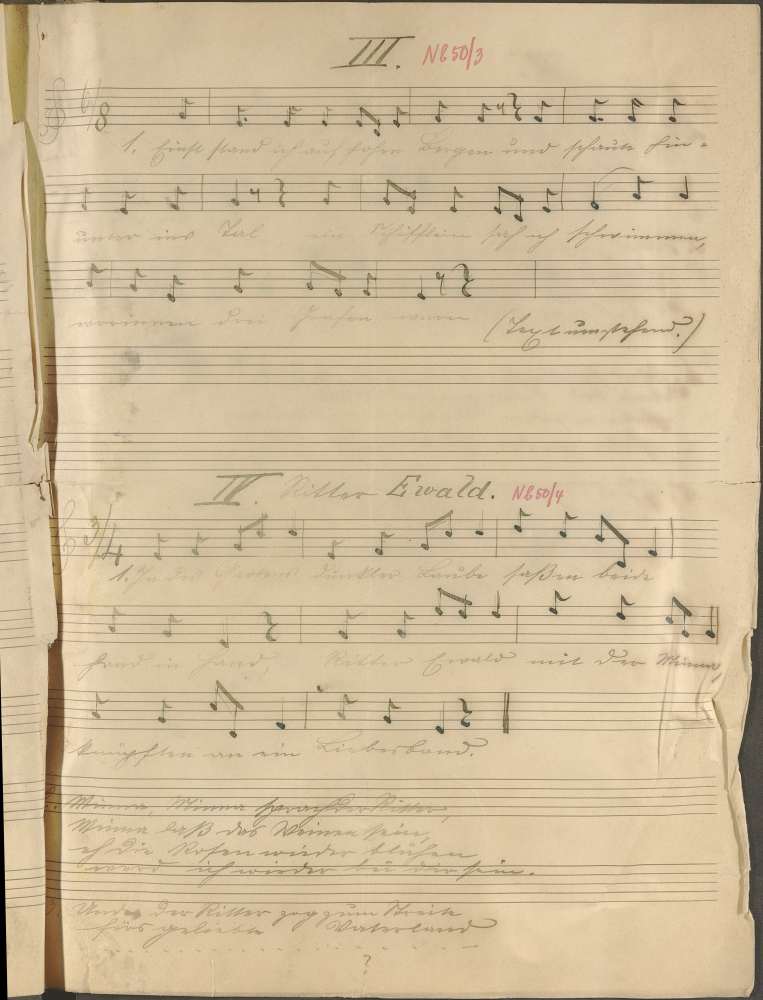 III. N650/3
6/8
1. Einst stand ich auf hohen Bergen und schaute hin-
unter ins Tal ein Schifflein sah ich schwimmen,
worinnen drei Grafen waren (Text umstehend.)
IV. Ritter Ewald. N650/4
3/4
1. In des Gartens dunkler Laube saßen beide
Hand in Hand, Ritter Ewald mit der Minna,
knüpften an ein Liebesband.
2. Minna, Minna sprach der Ritter,
Minna laß das Weinen sein,
eh die Rosen wieder blühen
werd ich wieder bei dir sein.
3. Und der Ritter zog zum Streite
fürs geliebte Vaterland
?